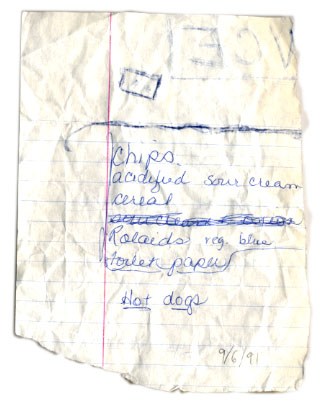 Chips.
acidified sour cream
cereal
Rolaids reg. blue
toilet paper
Hot dogs
9/6/91